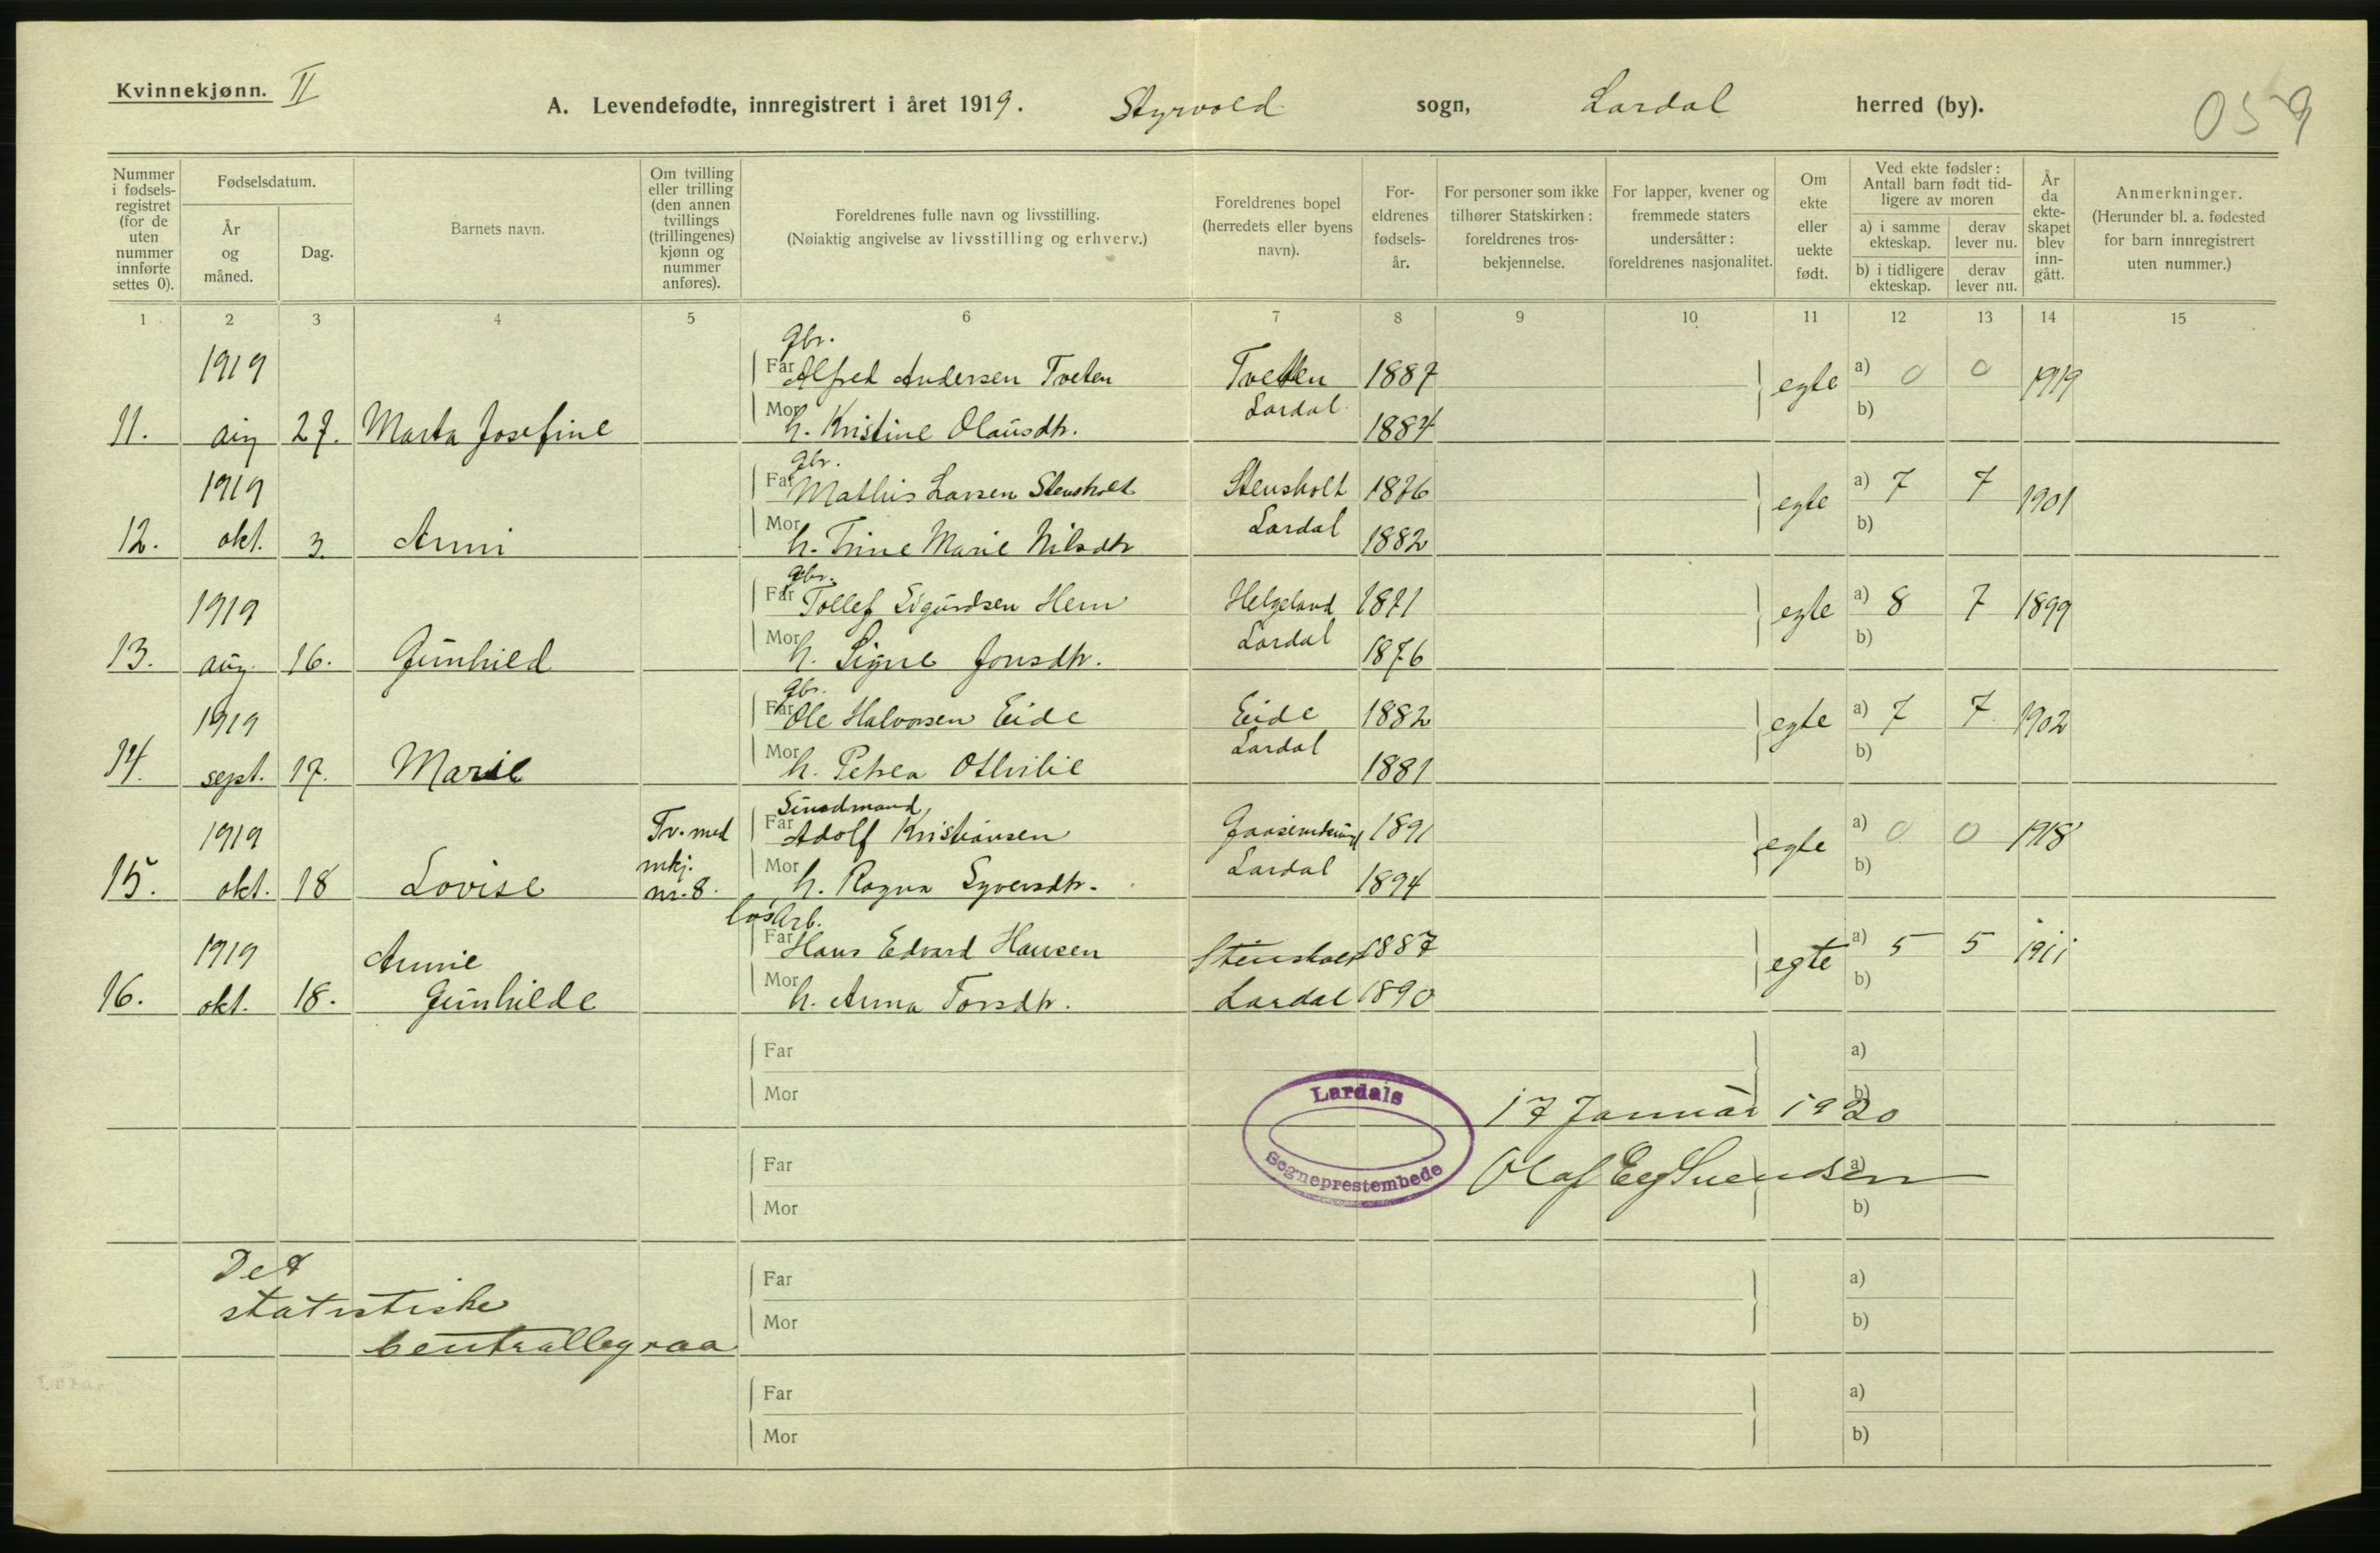 Kvinnekjønn. II
A. Levendefødte, innregistrert i året 1919. Styrvold sogn, Lardal herred (by).
059
Nummer i fødsels-registret (for de uten nummer innførte settes 0).
Fødselsdatum.
År og måned.
Dag.
Barnets navn.
Om tvilling eller trilling (den annen tvillings (trillingenes) kjønn og nummer anføres).
Foreldrenes fulle navn og livsstilling.
(Nøiaktig angivelse av livsstilling og erhverv.)
Foreldrenes bopel (herredets eller byens navn).
For-eldrenes fødsels-år.
For personer som ikke tilhører Statskirken: foreldrenes tros-bekjennelse.
For lapper, kvener og fremmede staters undersåtter: foreldrenes nasjonalitet.
Om ekte eller uekte født.
Ved ekte fødsler: Antall barn født tid-ligere av moren
a) i samme ekteskap.
derav lever nu.
b) i tidligere ekteskap.
derav lever nu.
År da ekte-skapet blev inn-gått.
Anmerkninger.
(Herunder bl. a. fødested for barn innregistrert uten nummer.)
1 2 3 4 5 6 7 8 9 10 11 12 13 14 15
gbr.
1919 Far Alfred Andersen Tveten Tveten 1887 egte a) 0 0 1919
11. aug 27. Marta Josefine Mor h. Kristine Olausdtr. Lardal 1884 b)
gbr.
1919 Far Mathis Larsen Stensholt Stensholt 1876 egte a) 7 7 1901
12. okt. 3. Anni Mor h. Trine Marie Nilsdtr Lardal 1882 b)
gbr.
1919 Far Tollef Sigurdsen Hem Helgeland 1871 egte a) 8 7 1899
13. aug. 16. Gunhild Mor h. Signe Jonsdtr. Lardal 1876 b)
gbr.
1919 Far Ole Halvorsen Eide Eide 1882 egte a) 7 7 1902
14. sept. 17. Marie Mor h. Petrea Othilie Lardal 1881 b)
1919 Tv. med Far Adolf Kristiansen 1891 egte a) 0 0 1918
15. okt. 18 Lovise mkj. nr. 8. Mor h. Ragna Syversdtr. Lardal 1894 b)
løsarb.
1919 Annie Far Hans Edvard Hansen Stensholt 1887 egte a) 5 5 1911
16. okt. 18. Gunhilde Mor h. Anna Torsdtr. Lardal 1890 b)
Far a)
Mor b)
Lardals Sogneprestembede
17 Januar 1920
Far a)
Olaf Eeg Svendsen
Mor b)
Det
Far a)
statistiske
Mor b)
Far a)
Mor b)